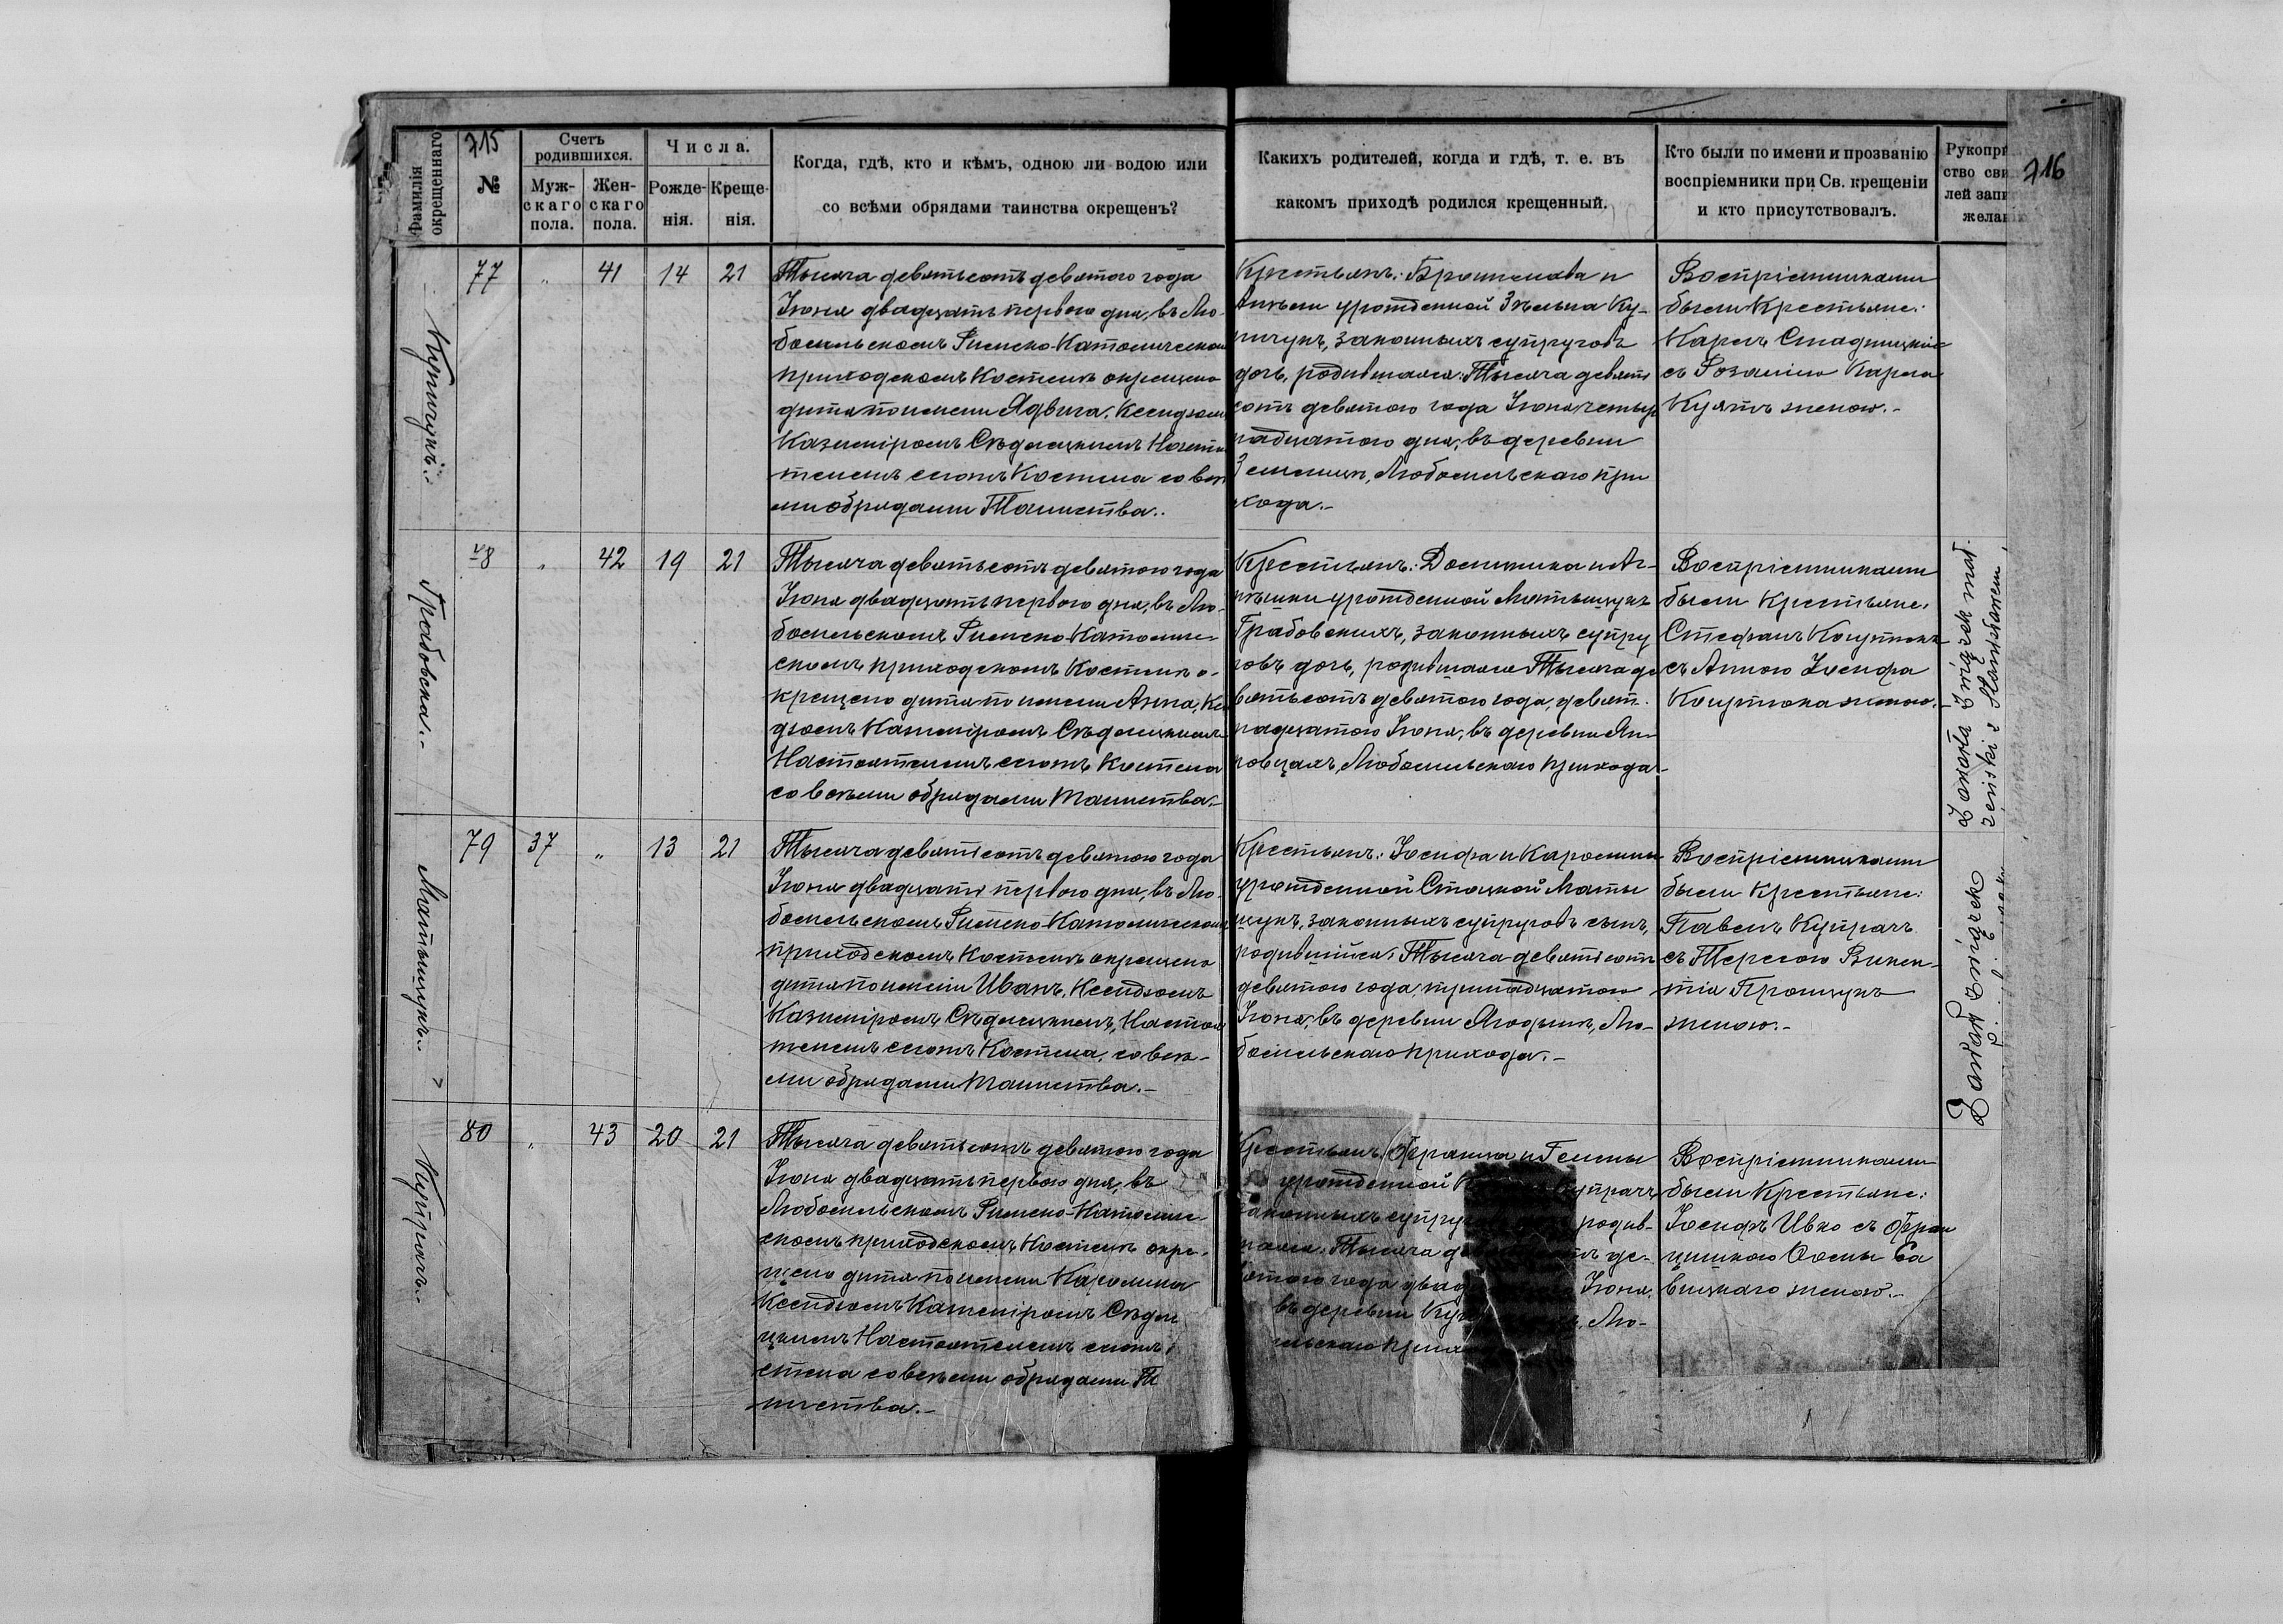 715
716
Фамилія окрещеннаго
№
Счетъ родившихся.
Муж-
скаго
пола.
Жен-
скаго
пола.
Числа.
Рожде-
нія.
Креще-
нія.
Когда, гдѣ, кто и кѣмъ, одною ли водою или
со всѣми обрядами таинства окрещенъ?
Какихъ родителей, когда и гдѣ, т. е. въ
какомъ приходѣ родился крещенный.
Кто были по имени и прозванію
воспріемники при Св. крещеніи
и кто присутствовалъ.
Рукопри
ство сви
лей запи
жела
77 " 41 14 21
Тысяча девятьсотъ девятого года
Іюня двадцать перваго дня, въ Лю-
бомльскомъ Римско-Католическом
приходскомъ Костелѣ окрещено
дитя по имени Ядвига, Ксендзом
Казиміромъ Сѣдлецкимъ Настоя
телемъ сіогоъ Костела со всѣ
ми обрядами Таинства.
Крестьянъ: Бронислава и
Анѣли урожденной Зѣльна Ку-
ничукъ, законныхъ супруговъ
дочь, родившаяся Тысяча девять
сотъ девятого года Іюня четыр
надцатого дня, въ деревни
Землицѣ, Любомльскаго при
хода.-
Воспріемниками
были Крестьяне:
Карлъ Стадницкій
съ Розаліею Карла
Куятъ женою.-
78 " 42 19 21
Грабовска.-
Тысяча девятьсотъ девятого года
Іюня двадцать перваго дня, въ Лю-
бомльскомъ Римско-Католиче-
скомъ приходскомъ Костелѣ о-
крещено дитя по имени Анна, Ксен
дзомъ Казиміромъ Сѣдлецкимъ
Настоятелемъ сіогоъ Костела
со всѣми обрядами Таинства.-
Крестьянъ: Доминика и Аг-
нѣшки урожденной Матыщукъ
Грабовскихъ, законныхъ супру
говъ дочь, родившаяся Тысяча де
вятьсотъ девятого года, девят-
надцатого Іюня, въ деревни Ян-
ковцахъ, Любомльскаго прихода-
Воспріемниками
были Крестьяне:
Стефанъ Коцтюкъ
съ Анною Іосифа
Коцтюка женою.-
79 37 " 13 21
Матыщукъ.-
Тысяча девятьсотъ девятого года
Іюня двадцать перваго дня, въ Лю-
бомльскомъ Римско-Католическом
приходскомъ Костелѣ окрещено
дитя по имени Иванъ, Ксендзомъ
Казиміромъ Сѣдлецкимъ, Настоя
телемъ сіогоъ Костела, со всѣ-
ми обрядами Таинства.-
Крестьянъ: Іосифа и Каролины
урожденной Стацкой Маты
щукъ, законныхъ супруговъ сынъ,
родившійся Тысяча девятьсотъ
девятого года, тринадцатого
Іюня, въ деревни Ягодынѣ, Лю-
бомльскаго прихода.-
Воспріемниками
были Крестьяне:
Павелъ Купрачъ
съ Терезою Викен-
тія Процукъ
женою.-
80 " 43 20 21
Купрачъ.-
Тысяча девятьсотъ девятого года
Іюня двадцать перваго дня, въ
Любомльскомъ Римско-Католиче-
скомъ приходскомъ Костелѣ окре-
щено дитя по имени Каролина
Ксендзомъ Казиміромъ Сѣдле
цкимъ Настоятелемъ сіогоъ
стела со всѣми обрядами Т
инства.-
Крестьянъ: Франца и Гелены
урожденной К купрачъ
законныхъ супру родив-
шаяся Тысяча де де-
вятого года двад Іюня,
въ деревни Ку Лю-
льскаго при
Воспріемниками
были Крестьяне:
Іосифъ Ивко съ Фран
цишкою Ѳомы Са
вицкаго женою.-
Zawarła związek mał-
żeński z Stankiewem
Zawarł związek